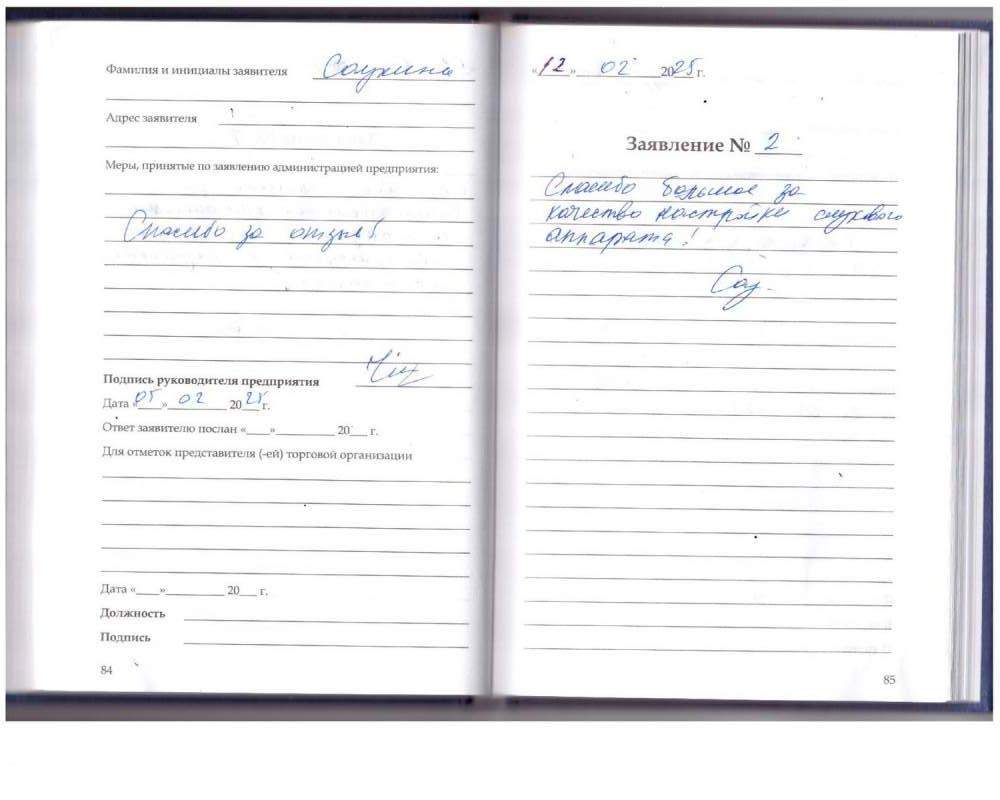 Фамилия и инициалы заявителя
Адрес заявителя
Меры, принятые по заявлению администрацией предприятия:
Спасибо за отзыв!
Подпись руководителя предприятия
Дата «05» 02 2025 г.
Ответ заявителю послан «___»__________ 20___ г.
Для отметок представителя (-ей) торговой организации
Дата «____»__________ 20___ г.
Должность
Подпись
84
«12» 02 2025 г.
Заявление № 2
Спасибо большое за
качество настройки слухового
аппарата!
85